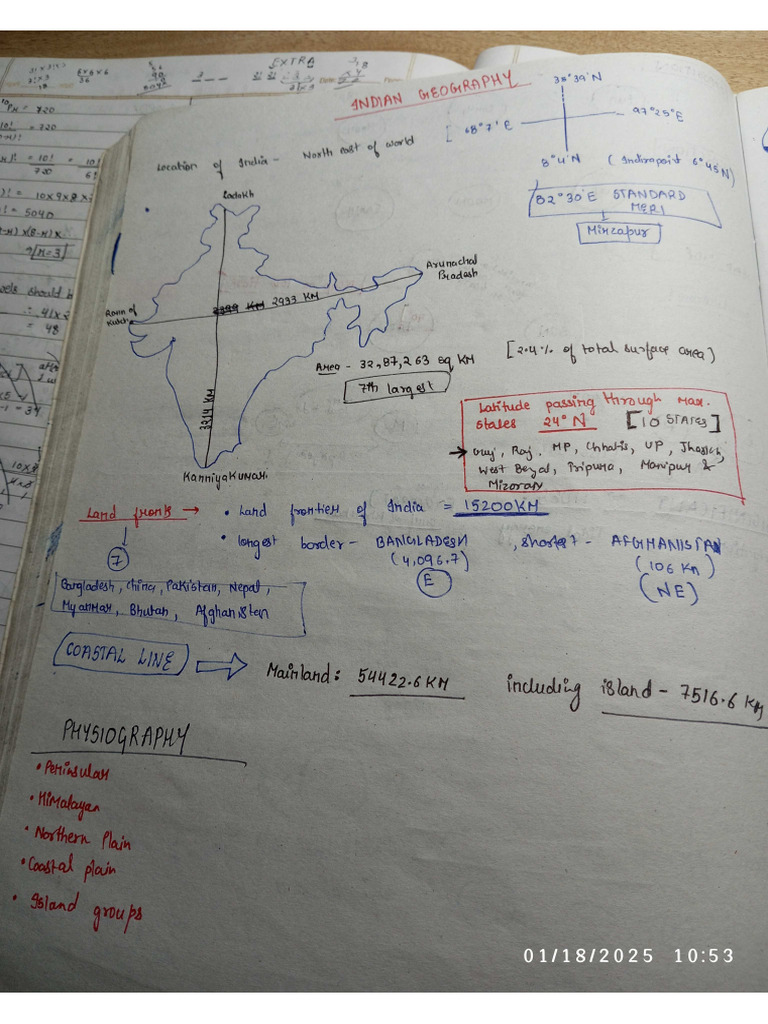 EXTRA
INDIAN GEOGRAPHY
35°39'N
68°7'E
97°25'E
8°4'N (Indirapoint 6°45'N)
Location of India - North east of world
82°30'E STANDARD
MERI
Mirzapur
Ladakh
Arunachal
Pradesh
Rann of
Kutch
2933 KM
3214 KM
Kanniyakumari
Area - 32,87,263 sq KM [2.4% of total surface area)
7th largest
Latitude passing through max.
states 24°N [10 STATES]
Guj, Raj, MP, Chhatis, UP, Jharkh,
West Bengal, Tripura, Manipur &
Mizoram
Land fronts → • Land frontier of India = 15200KM
7
• longest border - BANGLADESH , shortest - AFGHANISTAN
(4,096.7) (106 Km)
E (NE)
Bangladesh, China, Pakistan, Nepal,
Myanmar, Bhutan, Afghanistan
COASTAL LINE ⇒ Mainland: 54422.6 KM including island - 7516.6 KM
PHYSIOGRAPHY
• Peninsular
• Himalayan
• Northern Plain
• Coastal plain
• Island groups
01/18/2025 10:53